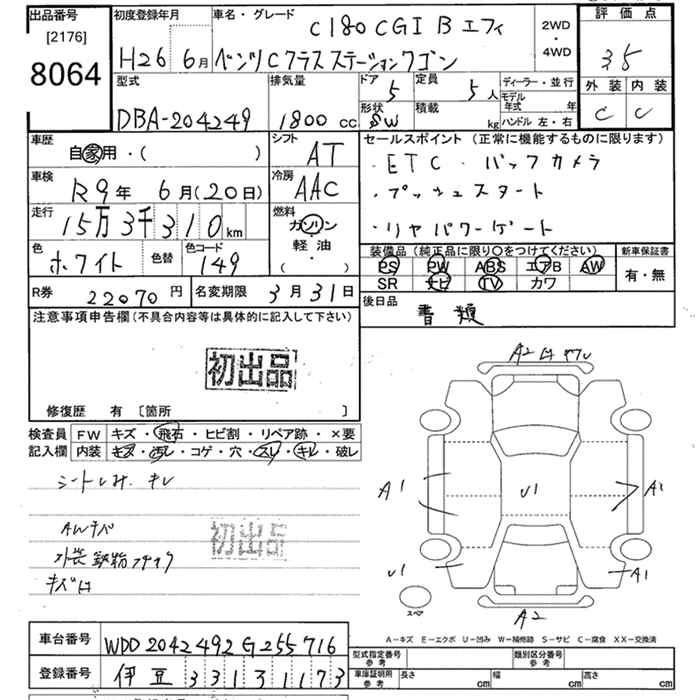 出品番号 初度登録年月 車名・グレード 評価点
[2176]
8064
C180 CGI B エフィ
2WD
・
4WD
3 5
H26 6月 ベンツCクラスステーションワゴン
外装 内装
C C
型式 排気量 ドア 定員 ディーラー・並行
5 5人 モデル年式 年
形状 積載 kg ハンドル 左・右
DBA-204249 1800cc SW
車歴 シフト セールスポイント (正常に機能するものに限ります)
自家用・( ) AT
・ETC ・バックカメラ
車検 冷房
R9年 6月(20日) AAC
・プッシュスタート
走行 燃料
15万3千310km ガソリン
・リヤパワーゲート
軽油
( ・ )
色 色替 色コード
ホワイト 149
装備品 (純正品に限り○をつけてください) 新車保証書
PS PW ABS エアB AW 有・無
SR ナビ TV カワ
R券 22070円 名変期限 3月31日
後日品 書類
注意事項申告欄(不具合内容等は具体的に記入して下さい)
初出品
修復歴 有 [箇所 ]
検査員 FW キズ・飛石・ヒビ割・リペア跡・×要
記入欄 内装 キズ・汚レ・コゲ・穴・スレ・キレ・破レ
シートしみ.キレ
初出品
キズ
A2
A1
U1
A1
U1
A1
スペア
A2
A−キズ E−エクボ U−凹み W−補修跡 S−サビ C−腐食 XX−交換済
車台番号 WDD2042492G255716
型式指定番号 参考 類別区分番号 参考
登録番号 伊豆 331 さ 1173
車庫証明用 参考 長さ cm 幅 cm 高さ cm